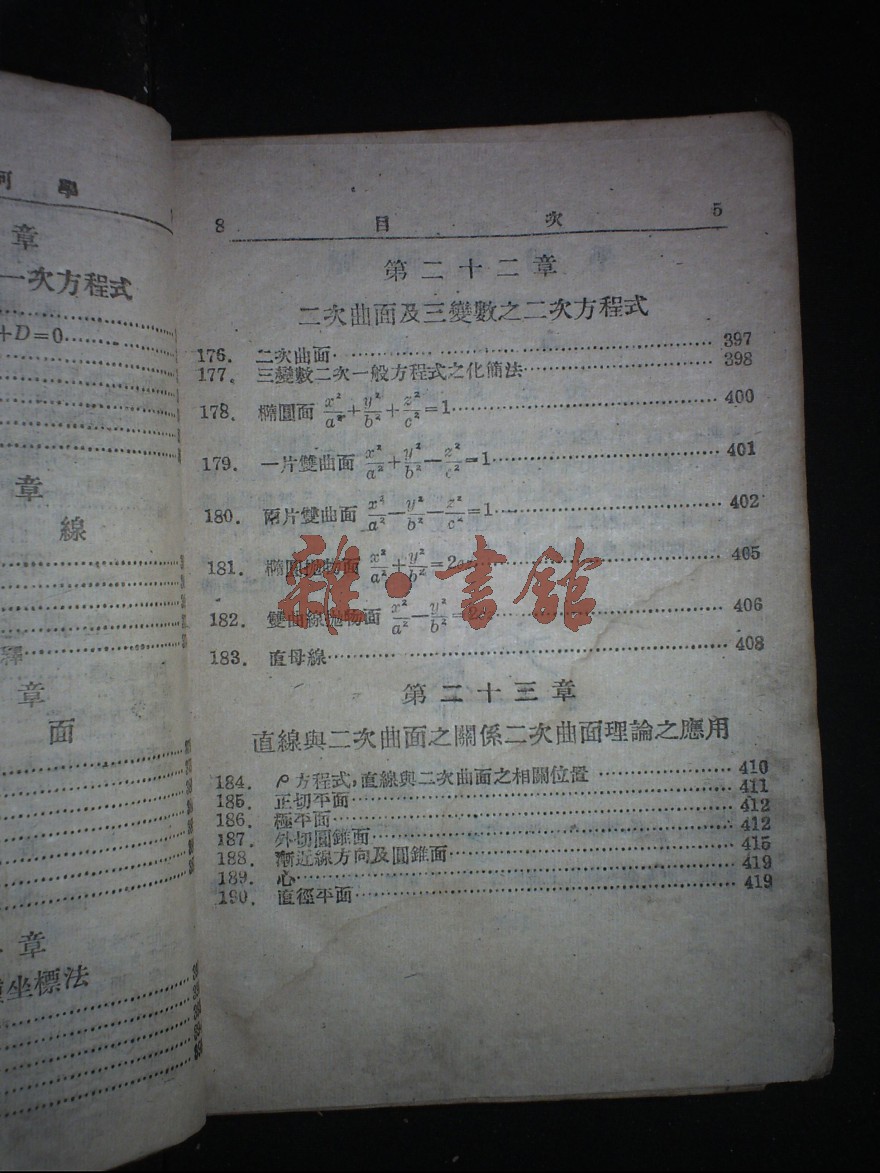 何 學
章
一次方程式
+D=0
章
線
釋
章
面
章
坐標法
8 目 次 5
第二十二章
二次曲面及三變數之二次方程式
176. 二次曲面 397
177. 三變數二次一般方程式之化簡法 398
178. 橢圓面 x²/a²+y²/b²+z²/c²=1 400
179. 一片雙曲面 x²/a²+y²/b²−z²/c²=1 401
180. 兩片雙曲面 x²/a²−y²/b²−z²/c²=1 402
181. 橢圓拋物面 x²/a²+y²/b²=2 405
182. 雙曲線拋物面 x²/a²−y²/b²=2 406
183. 直母線 408
雜·書館
第二十三章
直線與二次曲面之關係二次曲面理論之應用
184. ρ方程式,直線與二次曲面之相關位置 410
185. 正切平面 411
186. 極平面 412
187. 外切圓錐面 412
188. 漸近線方向及圓錐面 415
189. 心 419
190. 直徑平面 419